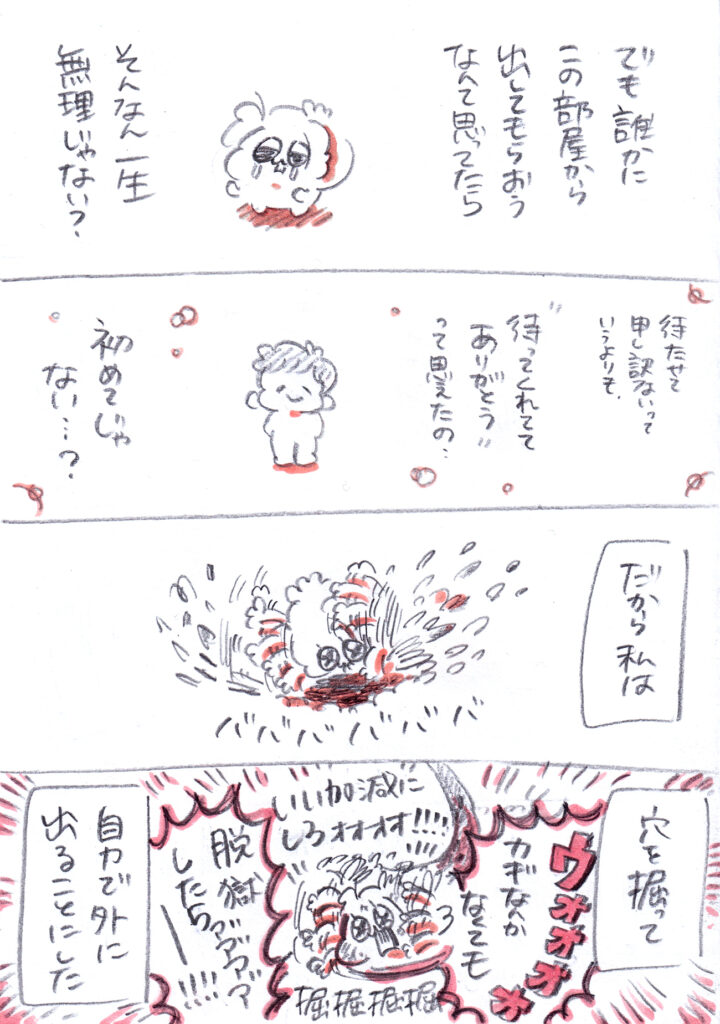 でも誰かに
この部屋から
出してもらおう
なんて思ってたら
そんなん一生
無理じゃない?
待たせて
申し訳ないって
いうよりそ、
"待ってくれてて
ありがとう"
って思えたの…
初めてじゃ
ない…?
だから私は
バババババババ
穴を掘って
ウォオオオオ
カギなんか
なくても
いい加減に
しろオオオオ!!!!
脱獄
したらァ゙ア゙ア゙ア゙ー!!!!
掘掘掘掘
自力で外に
出ることにした